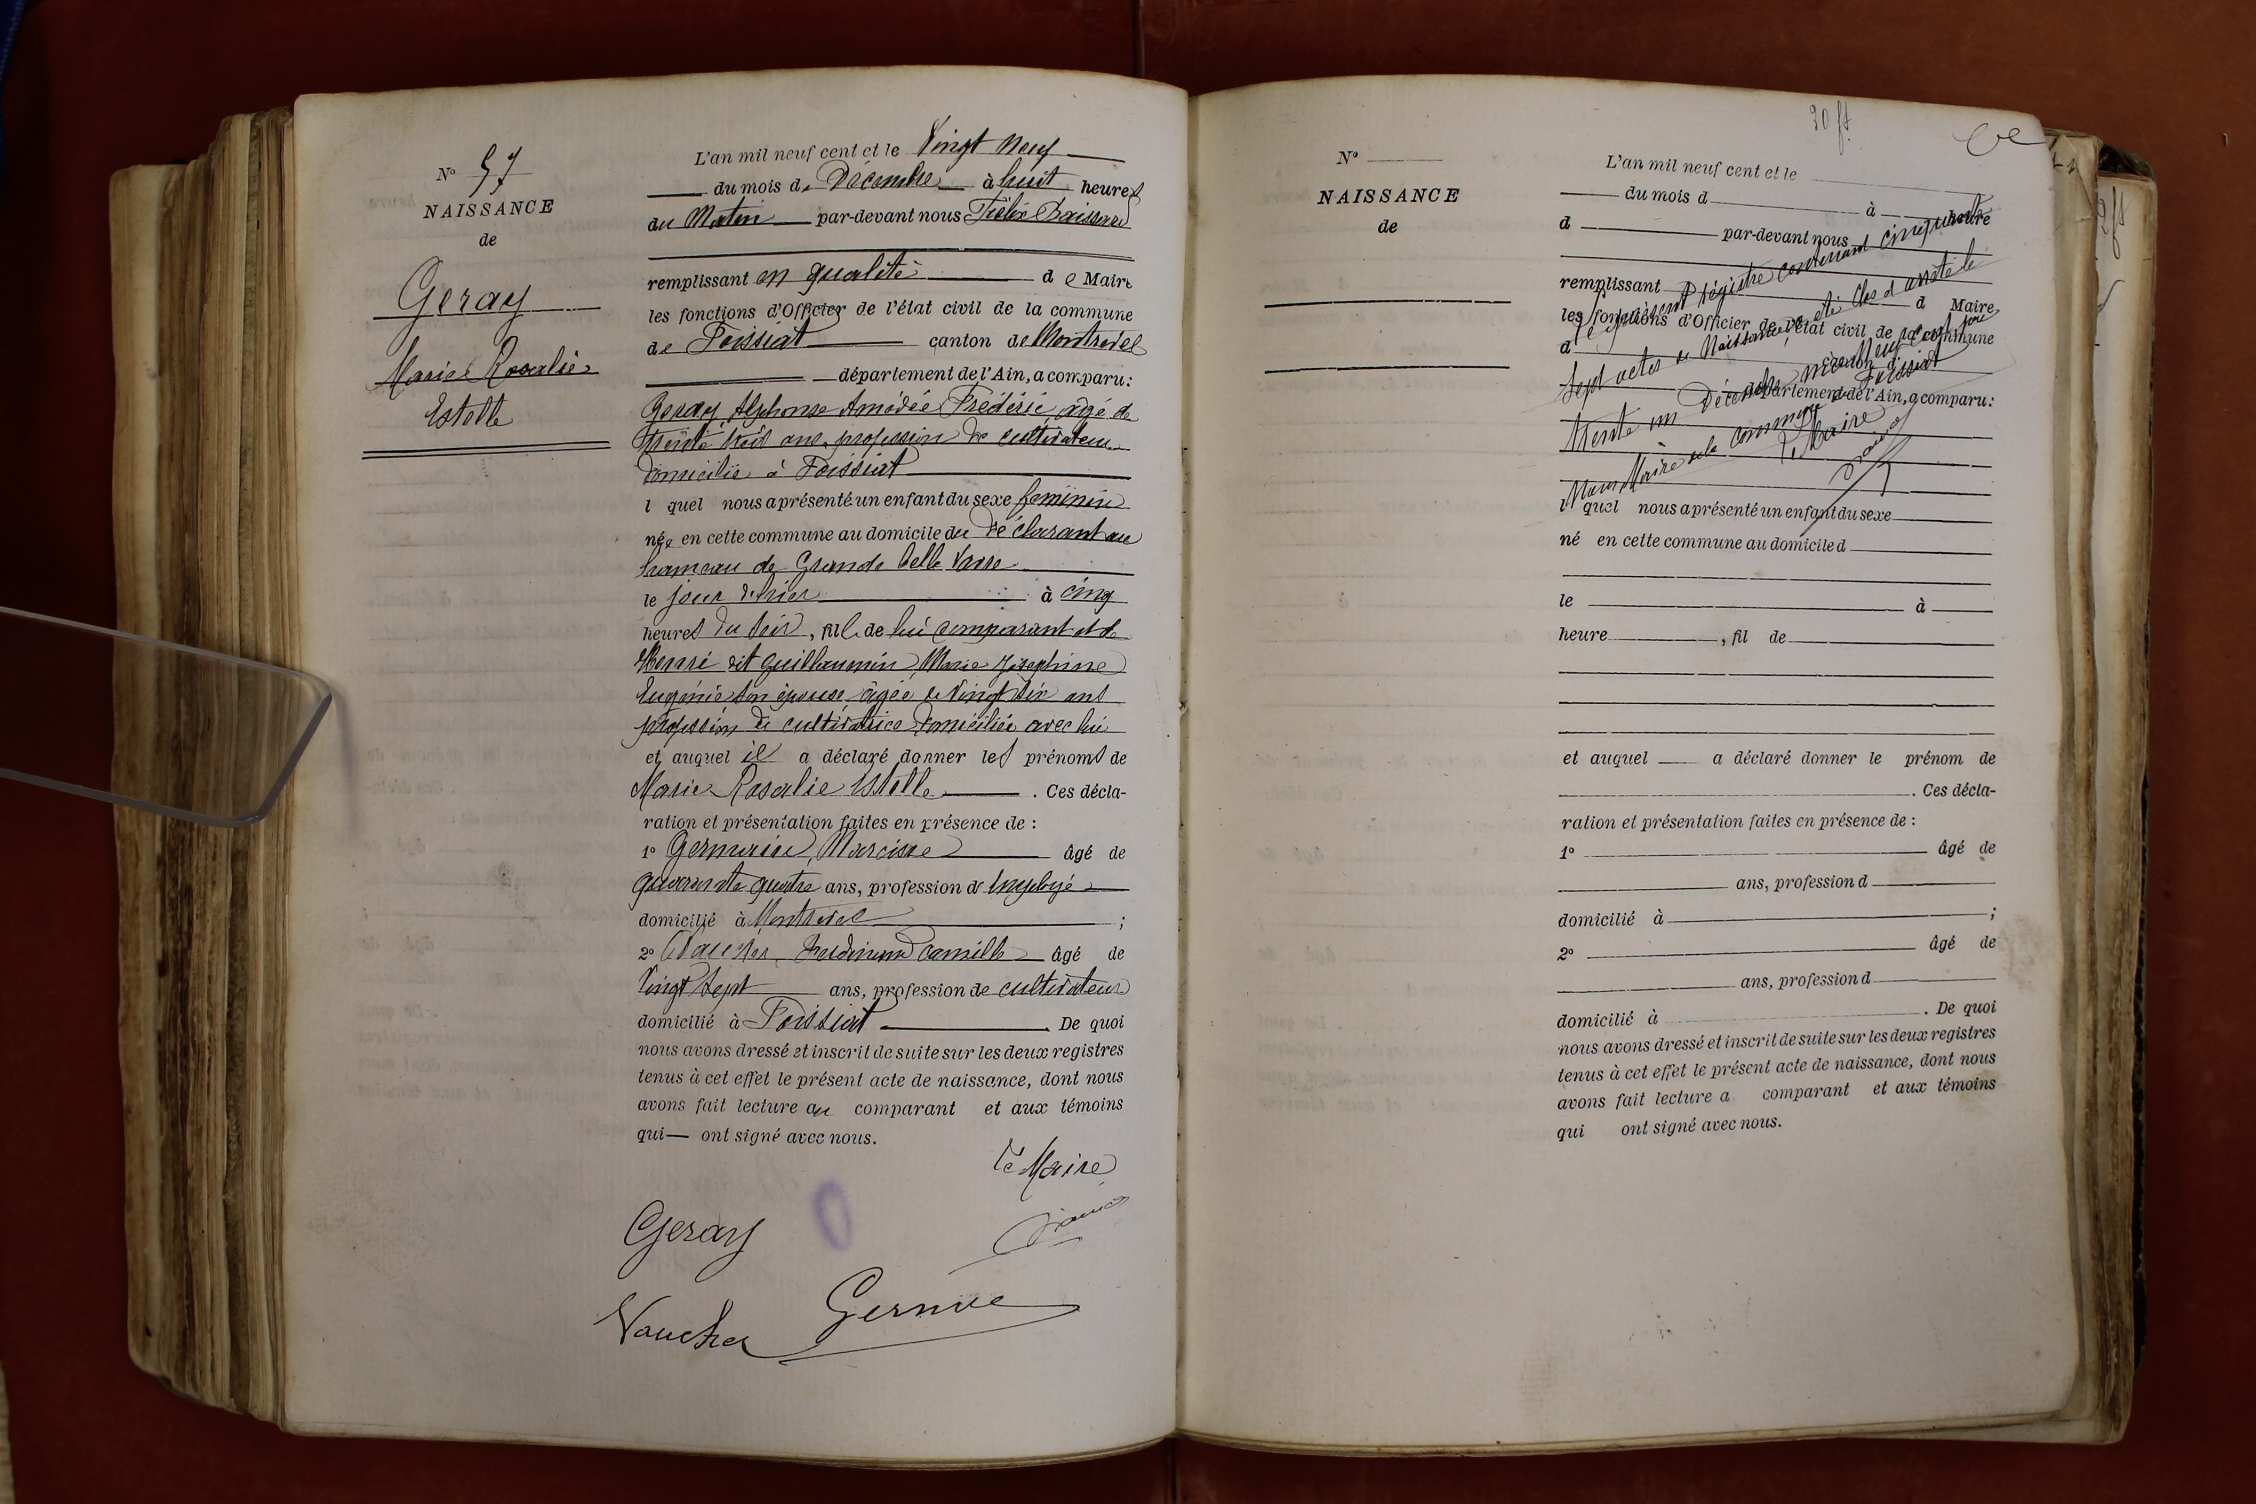 N° 57
NAISSANCE
de
Geray
Marie Rosalie
Estelle
L'an mil neuf cent et le Vingt neuf
du mois de Décembre à huit heures
du Matin par-devant nous Félix
remplissant en qualité de Maire
les fonctions d'Officier de l'état civil de la commune
de Foissiat canton de Montrevel
département de l'Ain, a comparu:
Geray, Alphonse Amédée Frédéric, âgé de
trente trois ans, profession de cultivateur
domicilié à Foissiat
l quel nous a présenté un enfant du sexe féminin
née en cette commune au domicile du déclarant au
hameau de Grande Belle Varre
le jour d'hier à cinq
heures du soir, fille de lui comparant et de
dit Guillaumin, Marie Joséphine
Eugénie son épouse âgée de Vingt six ans
profession de cultivatrice domiciliée avec lui
et auquel il a déclaré donner les prénoms de
Marie Rosalie Estelle. Ces décla-
ration et présentation faites en présence de :
1° Narcisse âgé de
quarante quatre ans, profession d' employé
domicilié à Montrevel ;
2° Vaucher Ferdinand Camille âgé de
Vingt sept ans, profession de cultivateur
domicilié à Foissiat. De quoi
nous avons dressé et inscrit de suite sur les deux registres
tenus à cet effet le présent acte de naissance, dont nous
avons fait lecture au comparant et aux témoins
qui — ont signé avec nous.
Le Maire
Geray
Vaucher
20 ft
N°
NAISSANCE
de
L'an mil neuf cent et le
du mois d à heure
d par-devant nous
remplissant d Maire
les fonctions d'Officier de l'état civil de la commune
d canton d
département de l'Ain, a comparu:
Le présent régistre contenant cinquante
sept actes de Naissance a été clos et arrêté le
trente un Décembre mil neuf cent par
Nous Maire de la commune de Foissiat
Le Maire
l quel nous a présenté un enfant du sexe
né en cette commune au domicile d
le à
heure , fil de
et auquel a déclaré donner le prénom de
. Ces décla-
ration et présentation faites en présence de :
1° âgé de
ans, profession d
domicilié à ;
2° âgé de
ans, profession d
domicilié à . De quoi
nous avons dressé et inscrit de suite sur les deux registres
tenus à cet effet le présent acte de naissance, dont nous
avons fait lecture a comparant et aux témoins
qui ont signé avec nous.